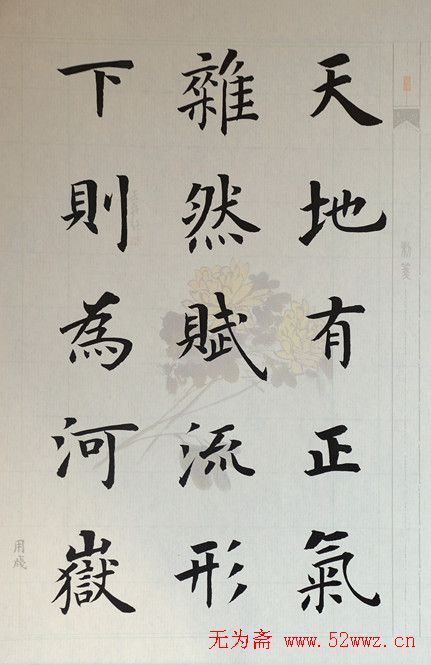 天地有正氣
雜然賦流形
下則為河嶽
用牋
无为斋 www.52wwz.cn